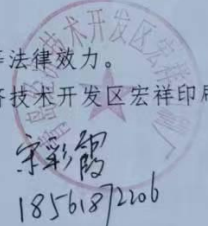 等法律效力。
济技术开发区宏祥印刷
宋彩霞
18561872206